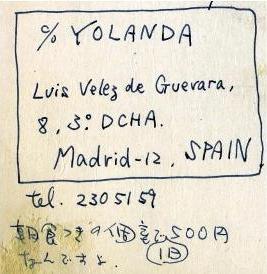 % YOLANDA
Luis Velez de Guevara,
8, 3º DCHA.
Madrid-12, SPAIN
tel. 2305159
朝食つきの個室で500円
1日
なんですよ.